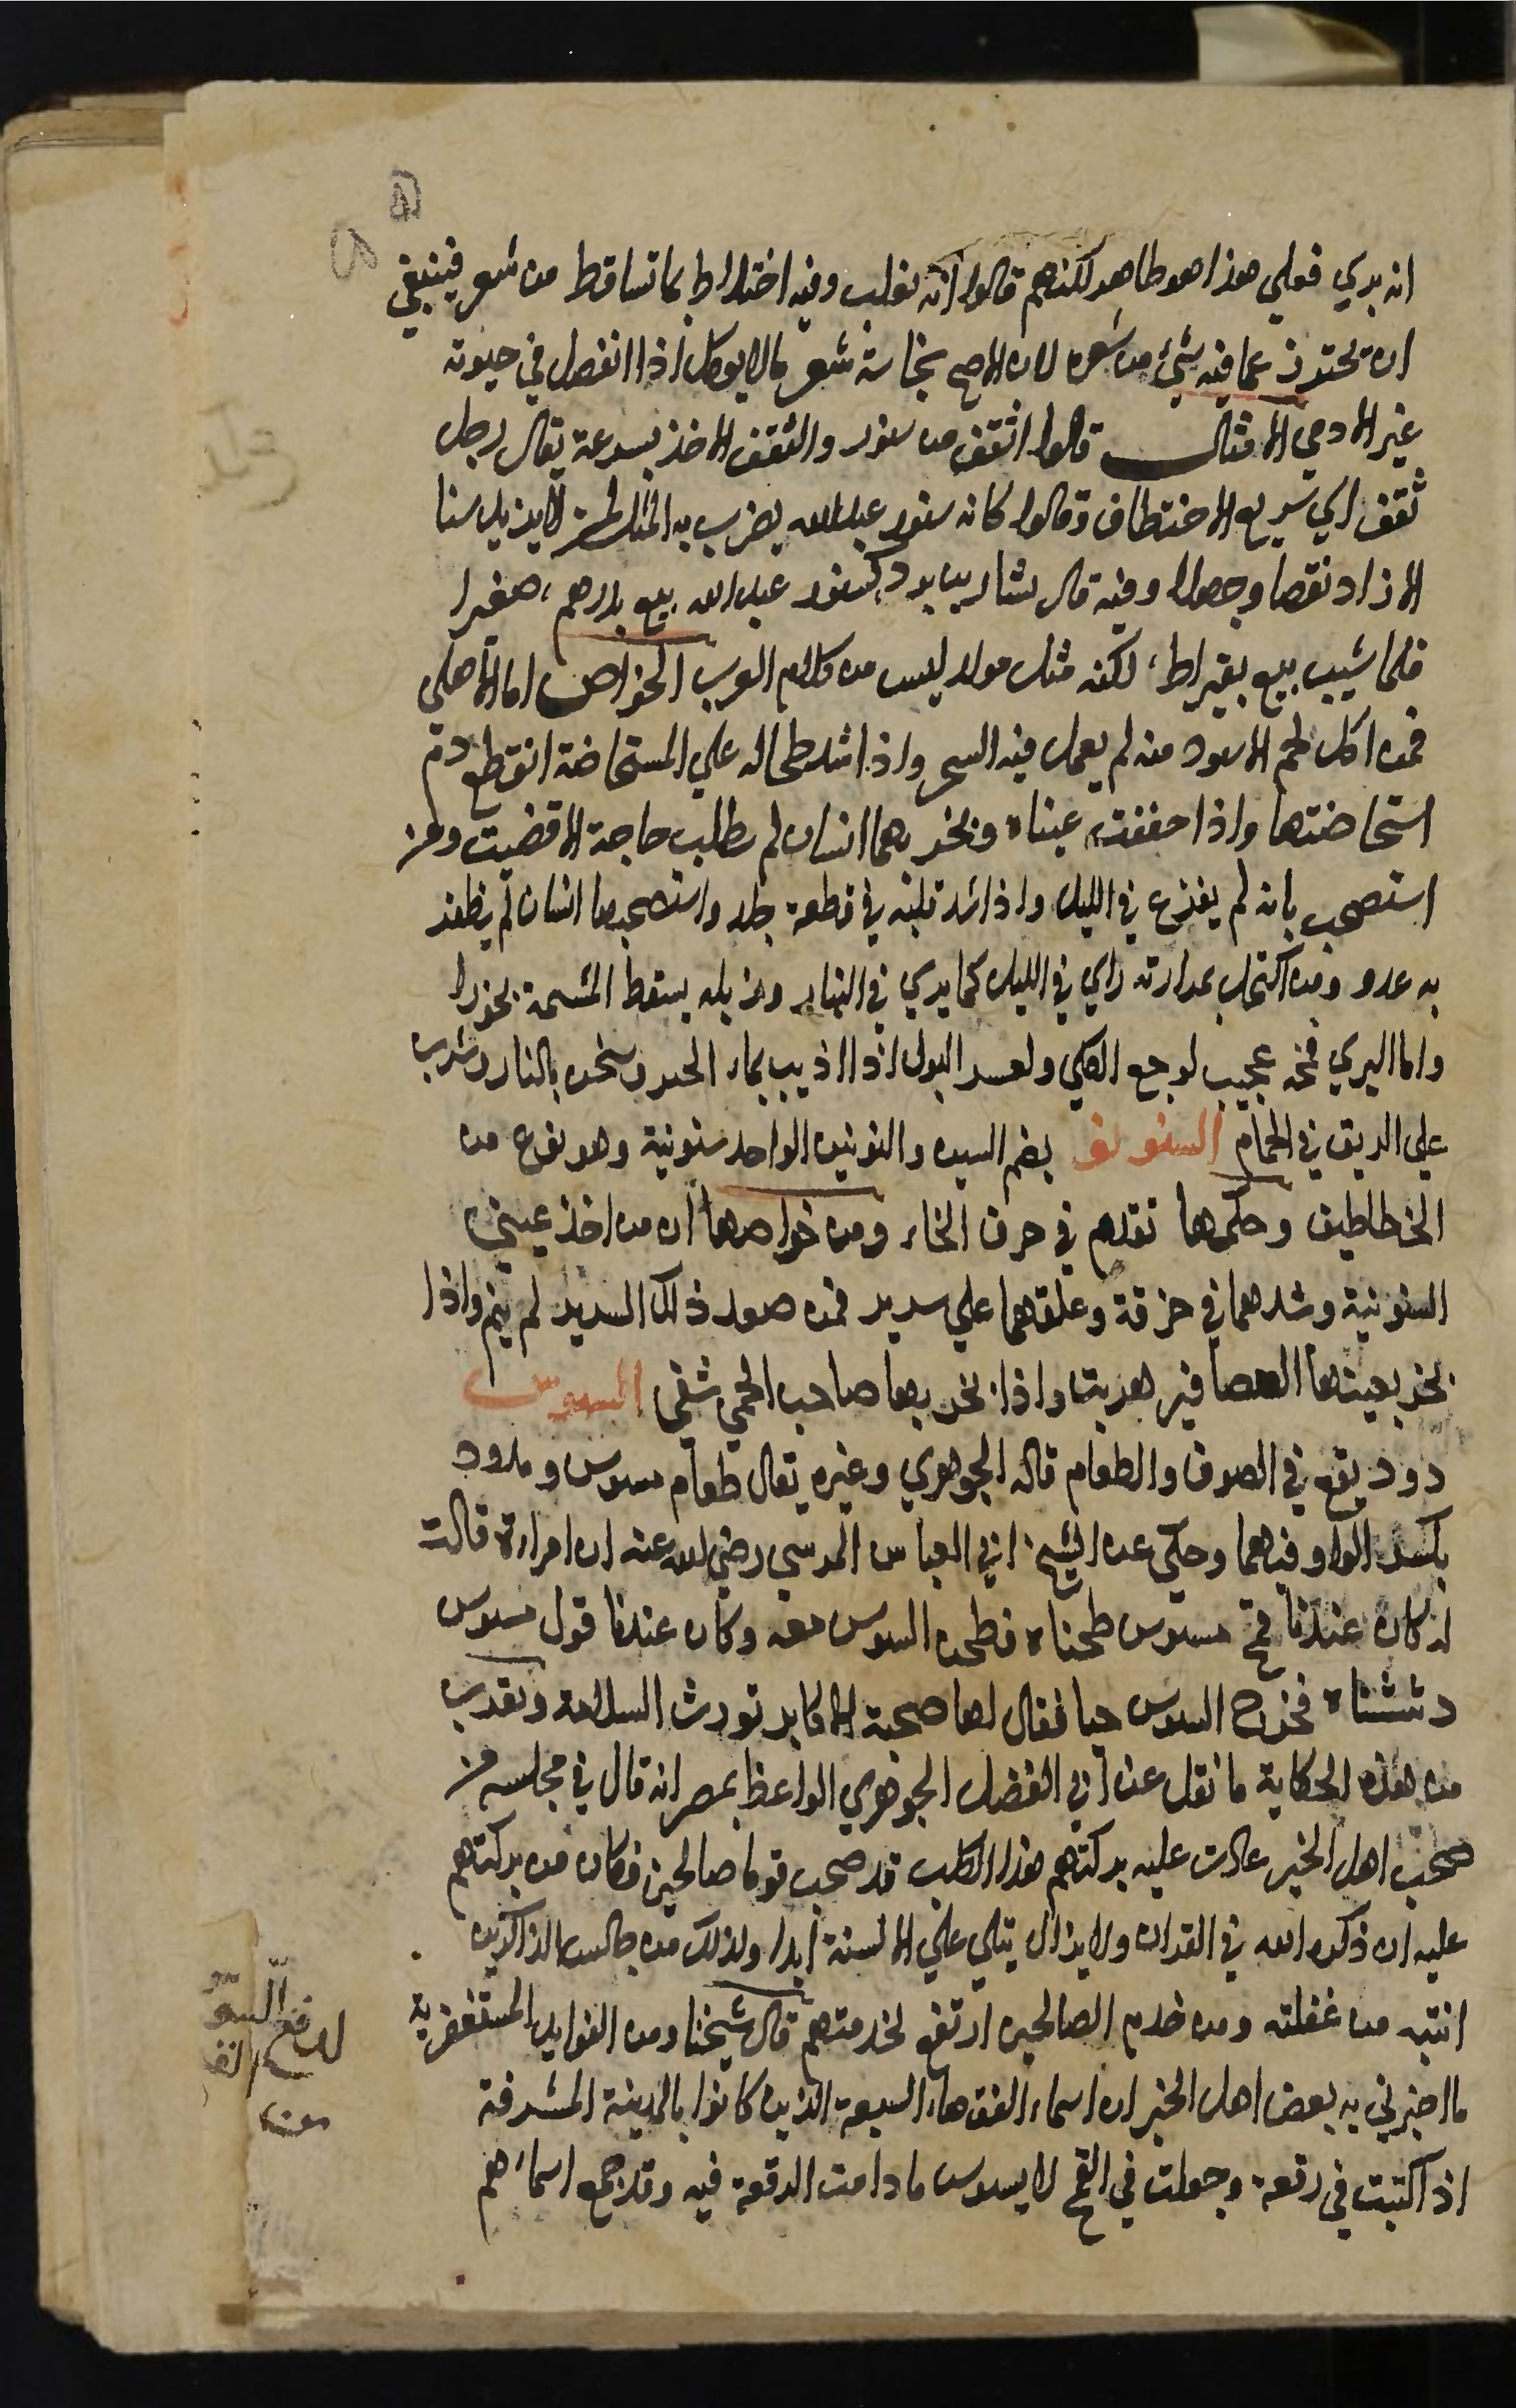 انه بري فعلي هذا هو طاهر لكنهم قالوا انه يغلب فيه اختلاط بما تساقط من شعره فينبغي
ان يحترز عما فيه شيئ من شعره لان الاصح نجاسة شعر مالا يوكل اذا انفصل في حيوته
غير الادمي الامثال قالوا اثقف من سنور والثقف الاخذ بسرعة يقال رجل
ثقف اي سريع الاختطاف وقالوا كانه سنور عبدالله يضرب به المثل لمن لا يزيد سنا
الا زاد نقصا وجهلا وفيه قال بشار بن برد كسنور عبدالله بيع بدرهم، صغيرا
فلما شيب بيع بقيراط، لكنه مثل مولد ليس من كلام العرب الخواص اما الاهلي
فمن اكل لحم الاسود منه لم يعمل فيه السحر واذا شد طحاله علي المستحاضة انقطع دم
استحاضتها واذا جففت عيناه وبخر بهما انسان لم يطلب حاجة الا قضيت ومن
استصحب بانه لم يفزع في الليل واذا شد قلبه في قطعة جلد واستصحبها انسان لم يظفر
به عدو ومن اكتحل بمرارته راي في الليل كما يري في النهار وزبله يسقط المشيمة بخورا
واما البري فمخه عجيب لوجع الكلي ولعسر البول اذا اذيب بماء الجرجير وسخن بالنار وشرب
علي الريق في الحمام السنونو بضم السين والنونين الواحد سنونية وهو نوع من
الخطاطيف وحكمها تقدم في حرف الخاء ومن خواصها ان من اخذ عيني
السنونية وشدهما في خرقة وعلقهما علي سرير فمن صعد ذلك السرير لم ينم واذا
بخر بعينها العصافير هربت واذا بخر بها صاحب الحمي شفي السوس
دود يقع في الصوف والطعام قاله الجوهري وغيره يقال طعام مسوس ومدود
بكسر الواو فيهما وحكي عن الشيخ ابي العباس المرسي رضي الله عنه ان امراة قالت
له كان عندنا قمح مسوس طحناه فطحن السوس معه وكان عندنا فول مسوس
دششناه فخرج السوس حيا فقال لها صحبة الاكابر تورث السلامة ويقرب
من هذه الحكاية ما نقل عن ابي الفضل الجوهري الواعظ بمصر انه قال في مجلسه من
صحب اهل الخير عادت عليه بركتهم هذا الكلب قد صحب قوما صالحين فكان من بركتهم
عليه ان ذكره الله في القران ولا يزال يتلي علي الالسنة ابدا ولذلك من جالس الذاكرين
انتبه من غفلته ومن خدم الصالحين ارتفع لخدمتهم قال شيخنا ومن الفوايد المستغفرية
ما اخبرني به بعض اهل الخير ان اسماء الفقهاء السبعة الذين كانوا بالمدينة المشرفة
اذا كتبت في رقعة وجعلت في القمح لا يسوس ما دامت الرقعة فيه وقد جمع اسماءهم
لدفع السو